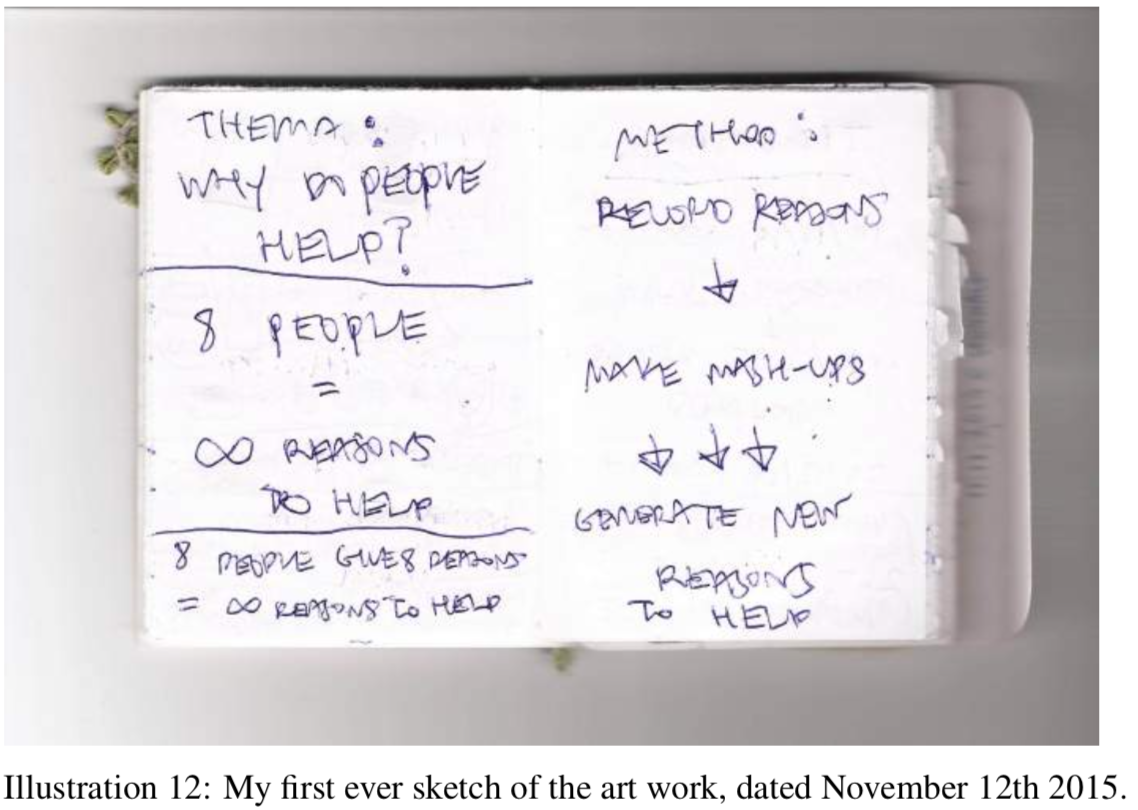 THEMA:
WHY DO PEOPLE
HELP?
8 PEOPLE
=
∞ REASONS
TO HELP
8 PEOPLE GIVE 8 REASONS
= ∞ REASONS TO HELP
METHOD:
RECORD REASONS
↓
MAKE MASH-UPS
↓ ↓ ↓
GENERATE NEW
REASONS
TO HELP
Illustration 12: My first ever sketch of the art work, dated November 12th 2015.